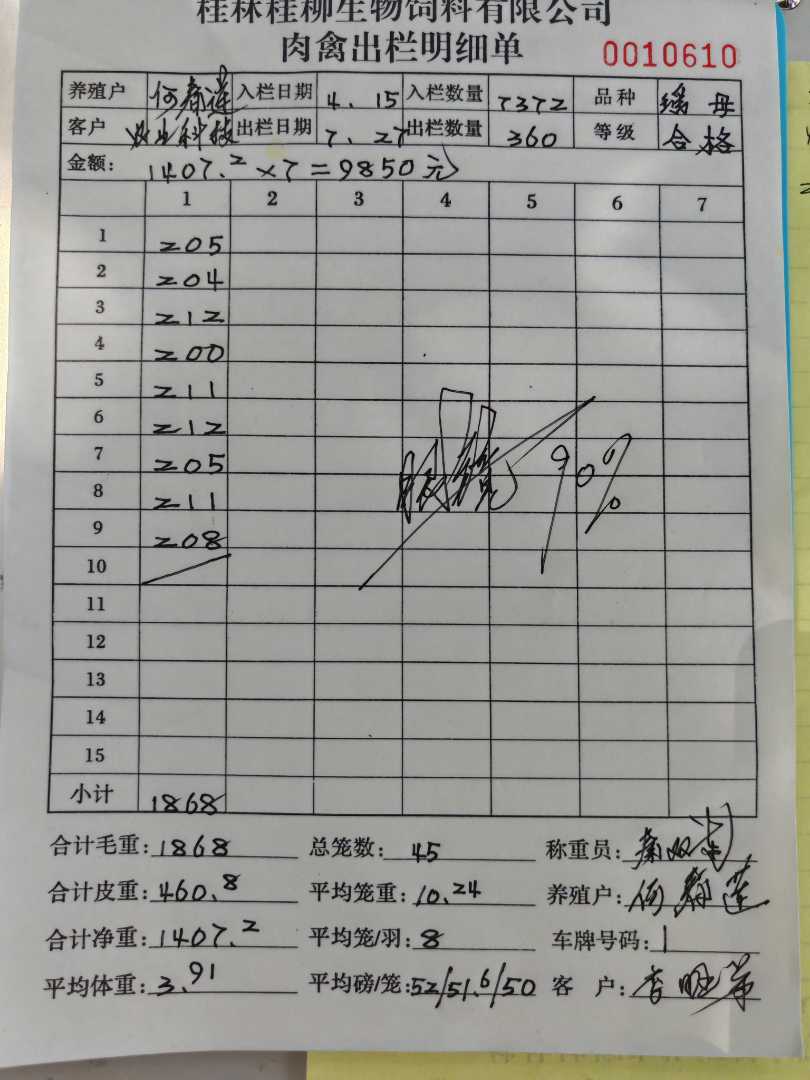 桂林桂柳生物饲料有限公司
肉禽出栏明细单 0010610
养殖户 何春莲 入栏日期 4.15 入栏数量 7372 品种 瑶母
客户 出栏日期 7.27 出栏数量 360 等级 合格
金额: 1407.2×7=9850元
1 2 3 4 5 6 7
1 205
2 204
3 212
4 200
5 211
6 212
7 205
8 211
9 208
10
90%
11
12
13
14
15
小计 1868
合计毛重: 1868 总笼数: 45 称重员:
合计皮重: 460.8 平均笼重: 10.24 养殖户: 何春莲
合计净重: 1407.2 平均笼/羽: 8 车牌号码:
平均体重: 3.91 平均磅/笼: 52/51.6/50 客户: